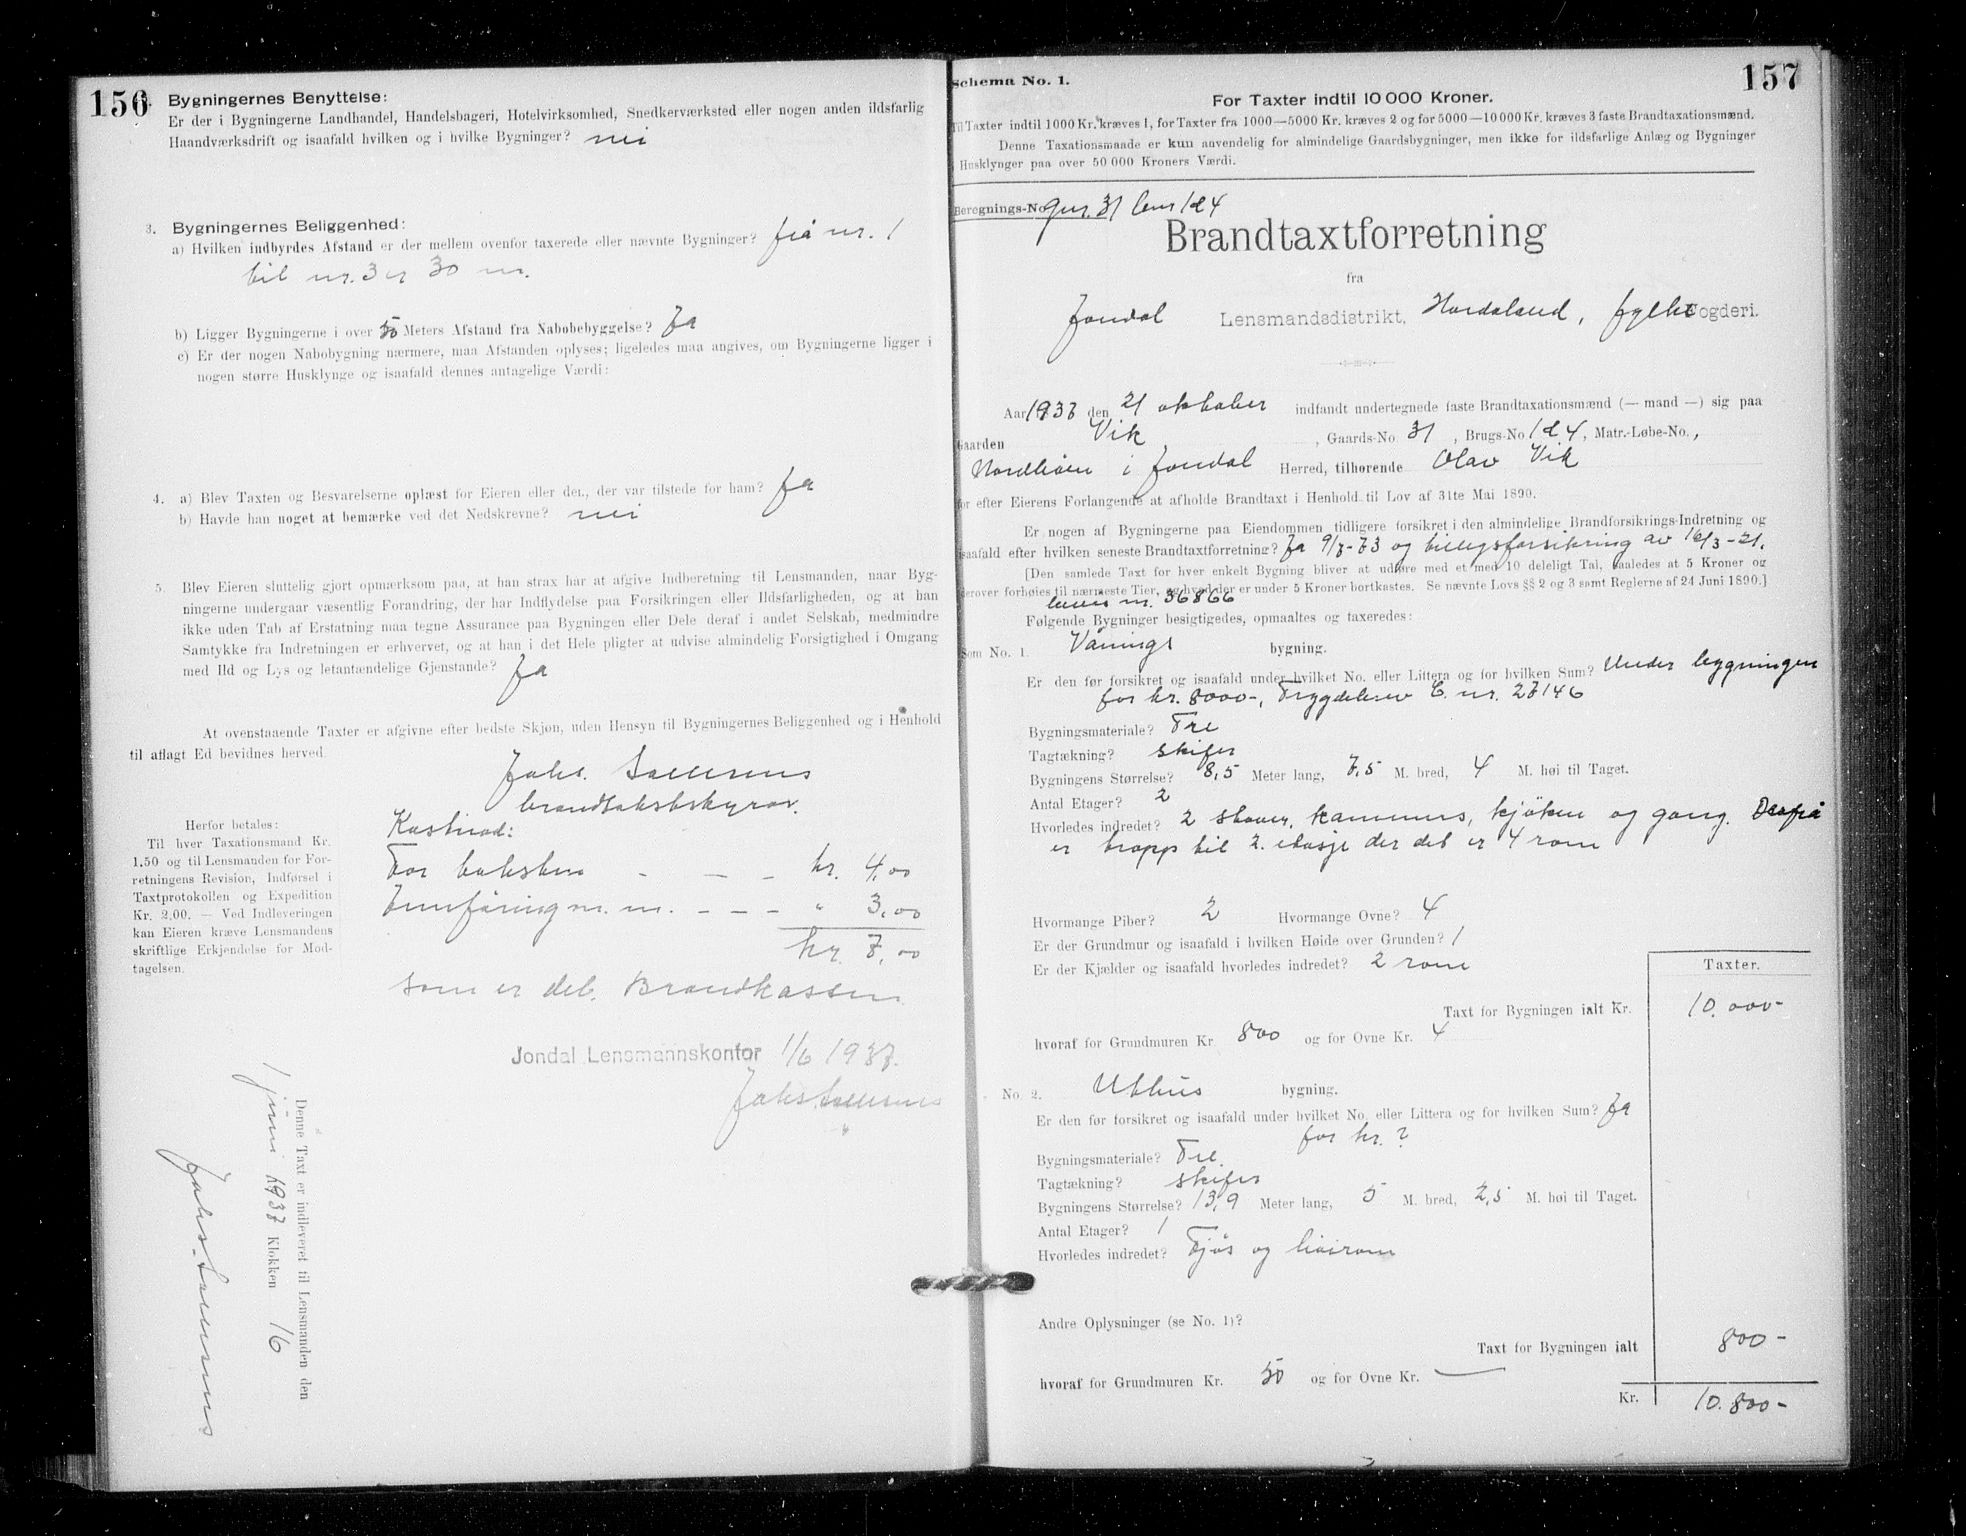 156
Bygningernes Benyttelse:
Er der i Bygningerne Landhandel, Handelsbageri, Hotelvirksomhed, Snedkerværksted eller nogen anden ildsfarlig
Haandværksdrift og isaafald hvilken og i hvilke Bygninger? nei
3. Bygningernes Beliggenhed:
a) Hvilken indbyrdes Afstand er der mellem ovenfor taxerede eller nævnte Bygninger? frå nr. 1
til nr. 3 er 30 m.
b) Ligger Bygningerne i over 50 Meters Afstand fra Nabobebyggelse? Ja
c) Er der nogen Nabobygning nærmere, maa Afstanden oplyses; ligeledes maa angives, om Bygningerne ligger i
nogen større Husklynge og isaafald dennes antagelige Værdi:
4. a) Blev Taxten og Besvarelserne oplæst for Eieren eller den, der var tilstede for ham? Ja
b) Havde han noget at bemærke ved det Nedskrevne? nei
5. Blev Eieren sluttelig gjort opmærksom paa, at han strax har at afgive Indberetning til Lensmanden, naar Byg-
ningerne undergaar væsentlig Forandring, der har Indflydelse paa Forsikringen eller Ildsfarligheden, og at han
ikke uden Tab af Erstatning maa tegne Assurance paa Bygningen eller Dele deraf i andet Selskab, medmindre
Samtykke fra Indretningen er erhvervet, og at han i det Hele pligter at udvise almindelig Forsigtighed i Omgang
med Ild og Lys og letantændelige Gjenstande? Ja
At ovenstaaende Taxter er afgivne efter bedste Skjøn, uden Hensyn til Bygningernes Beliggenhed og i Henhold
til aflagt Ed bevidnes herved.
Johs.
brandtakstskyrar.
Herfor betales:
Til hver Taxationsmand Kr.
1,50 og til Lensmanden for For-
retningens Revision, Indførsel i
Taxtprotokollen og Expedition
Kr. 2,00. — Ved Indleveringen
kan Eieren kræve Lensmandens
skriftlige Erkjendelse for Mod-
tagelsen.
Kostnad:
For taksten - - - kr. 4,00
Innføring m. m. - - - " 3,00
kr. 7,00
som er deb. Brandkassen
Jondal Lensmannskontor 1/6 1937.
Johs.
Denne Taxt er indleveret til Lensmanden den
1 juni 1937 Klokken 16
Johs.
157
Schema No. 1.
For Taxter indtil 10 000 Kroner.
Til Taxter indtil 1000 Kr. kræves 1, for Taxter fra 1000—5000 Kr. kræves 2 og for 5000—10000 Kr. kræves 3 faste Brandtaxationsmænd.
Denne Taxationsmaade er kun anvendelig for almindelige Gaardsbygninger, men ikke for ildsfarlige Anlæg og Bygninger
i Husklynger paa over 50 000 Kroners Værdi.
Beregnings-No. gnr. 31 bnr 1 d 4
Brandtaxtforretning
fra
Jondal Lensmandsdistrikt, Hordaland, fylke Fogderi.
Aar 1937 den 21 oktober indfandt undertegnede faste Brandtaxationsmænd (— mand —) sig paa
Gaarden Vik, Gaards-No. 31, Brugs-No 1 d 4, Matr.-Løbe-No.,
i Jondal Herred, tilhørende Olav Vik
for efter Eierens Forlangende at afholde Brandtaxt i Henhold til Lov af 31te Mai 1890.
Er nogen af Bygningerne paa Eiendommen tidligere forsikret i den almindelige Brandforsikrings-Indretning og
isaafald efter hvilken seneste Brandtaxtforretning? Ja 9/7-73 og tilleggsforsikring av 16/3-21.
[Den samlede Taxt for hver enkelt Bygning bliver at udføre med et med 10 deleligt Tal, saaledes at 5 Kroner og
derover forhøies til nærmeste Tier, og hvad der er under 5 Kroner bortkastes. Se nævnte Lovs §§ 2 og 3 samt Reglerne af 24 Juni 1890.]
nr. 36866
Følgende Bygninger besigtigedes, opmaaltes og taxeredes:
Som No. 1. Vånings bygning.
Er den før forsikret og isaafald under hvilket No. eller Littera og for hvilken Sum? Under bygningen
for kr. 8000-, Trygdebrev E. nr. 27146
Bygningsmateriale? Tre
Tagtækning? skifer
Bygningens Størrelse? 8,5 Meter lang, 7,5 M. bred, 4 M. høi til Taget.
Antal Etager? 2
Hvorledes indredet? 2 stover, kammers, kjöken og gang. Derfrå
er tropp til 2. etasje der det er 4 rom
Hvormange Piber? 2 Hvormange Ovne? 4
Er der Grundmur og isaafald i hvilken Høide over Grunden? 1
Er der Kjælder og isaafald hvorledes indredet? 2 rom
Taxter.
Taxt for Bygningen ialt Kr. 10.000-
hvoraf for Grundmuren Kr 800 og for Ovne Kr. 4
No. 2. Uthus bygning.
Er den før forsikret og isaafald under hvilket No. eller Littera og for hvilken Sum? Ja
for kr. ?
Bygningsmateriale? Tre.
Tagtækning? skifer
Bygningens Størrelse? 13,9 Meter lang, 5 M. bred, 2,5 M. høi til Taget.
Antal Etager? 1
Hvorledes indredet? Fjøs og höirom
Andre Oplysninger (se No. 1)?
Taxt for Bygningen ialt 800-
hvoraf for Grundmuren Kr. 50 og for Ovne Kr. —
Kr. 10.800-